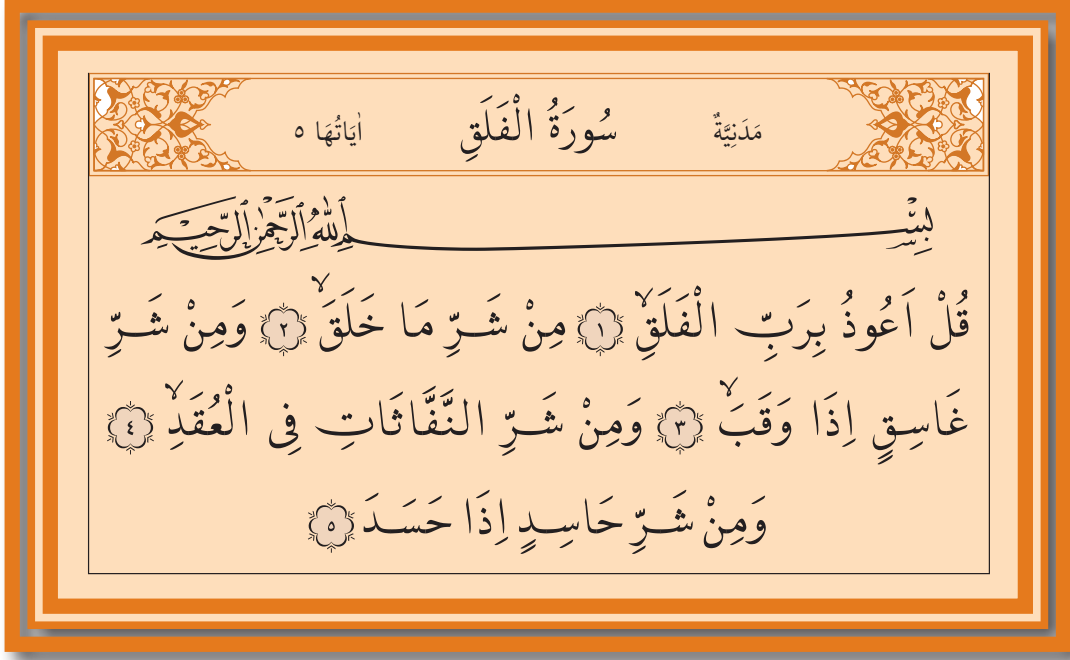 مَدَنِيَّةٌ سُورَةُ الْفَلَقِ اٰيَاتُهَا ٥
بِسْمِ اللّٰهِ الرَّحْمٰنِ الرَّحٖيمِ
قُلْ اَعُوذُ بِرَبِّ الْفَلَقِۙ ﴿١﴾ مِنْ شَرِّ مَا خَلَقَۙ ﴿٢﴾ وَمِنْ شَرِّ
غَاسِقٍ اِذَا وَقَبَۙ ﴿٣﴾ وَمِنْ شَرِّ النَّفَّاثَاتِ فِى الْعُقَدِۙ ﴿٤﴾
وَمِنْ شَرِّ حَاسِدٍ اِذَا حَسَدَ ﴿٥﴾